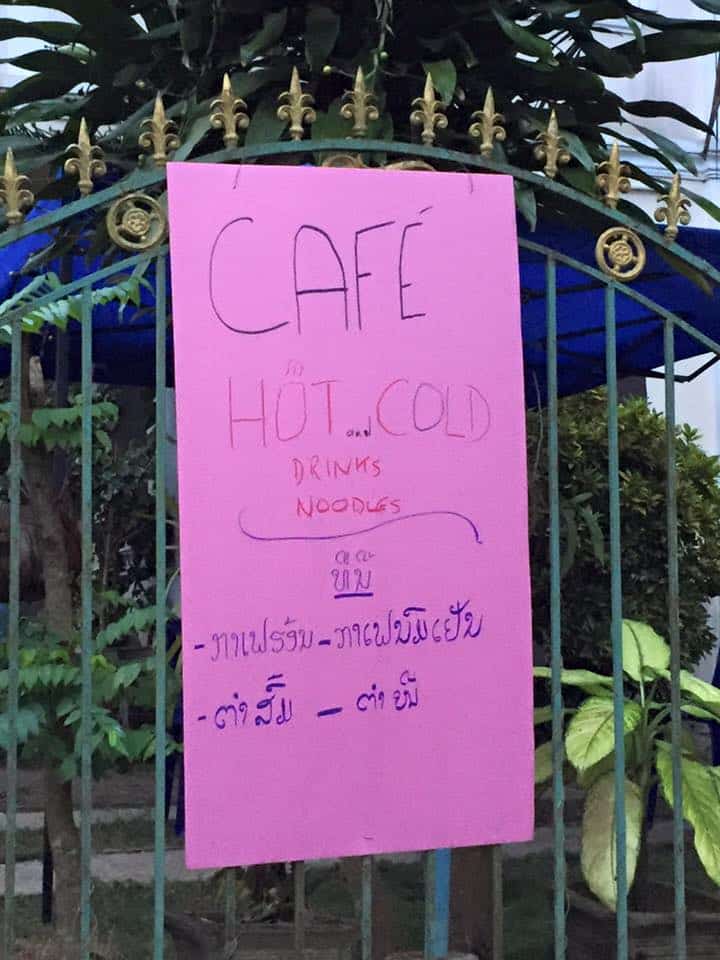 CAFÉ
HOT and COLD
DRINKS
NOODLES
ທີ່ນີ້
- ກາເຟຮ້ອນ - ກາເຟນົມເຢັນ
- ຕຳສົ້ມ - ຕຳຍຳ